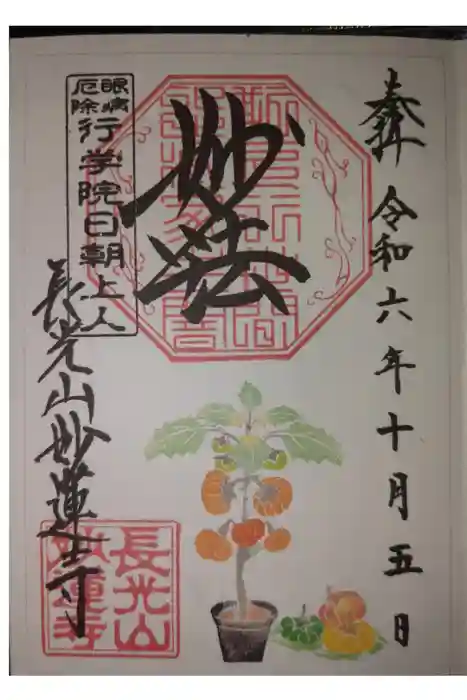 奉拝 令和六年十月五日
妙法
眼病
厄除
行学院日朝上人
長光山妙蓮寺
長光山
妙蓮寺